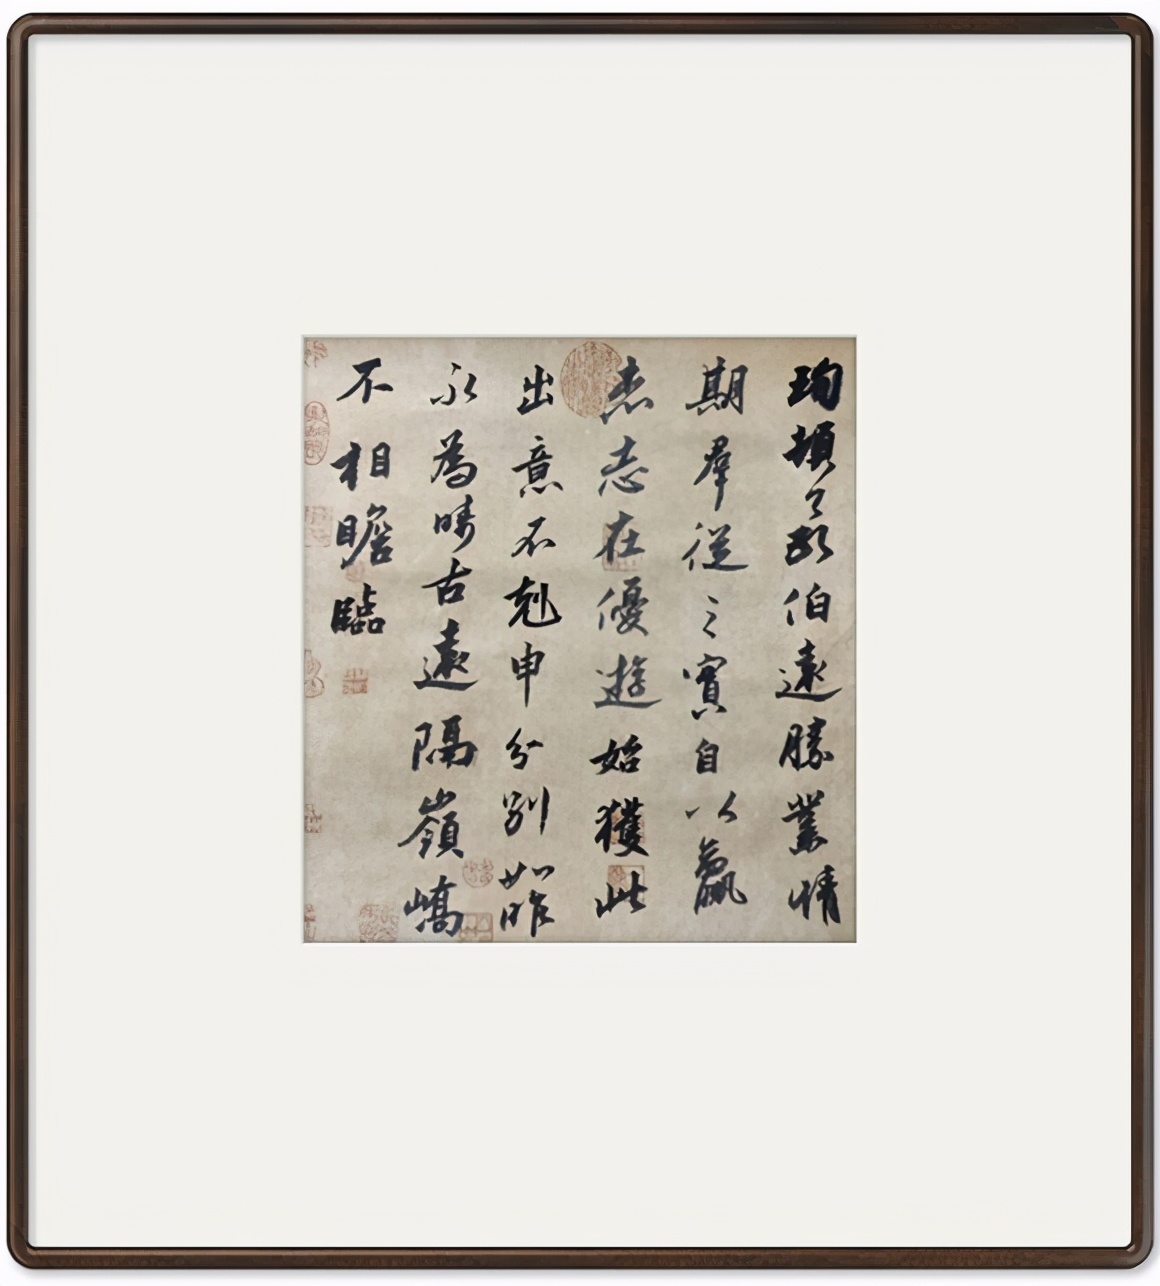 珣頓首頓首伯遠勝業情
期羣從之寶自以羸
患志在優遊始獲此
出意不剋申分別如昨
永為疇古遠隔嶺嶠
不相瞻臨